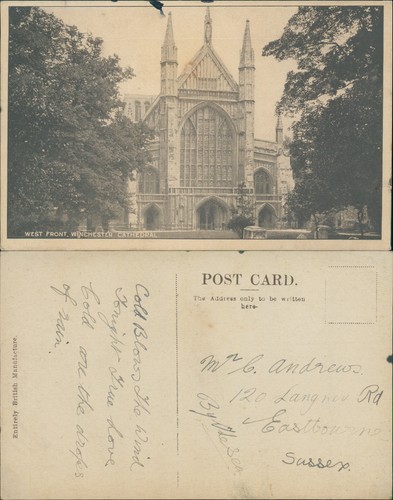 WEST FRONT, WINCHESTER CATHEDRAL
POST CARD.
The Address only to be written
here.
Entirely British Manufacture.
Cold Blows The Wind
Tonight True Love
Cold are the drops
of rain.
Mr C. Andrews.
120 Langney Rd
Eastbourne
By the Sea
Sussex.